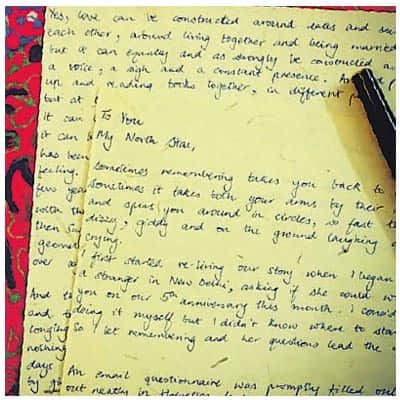 Yes, love can be constructed around dates and
each other, around living together and being married
but it can equally and as strongly be constructed
a voice, a sigh and a constant presence.
up and reading books together, in different
too at
it can
it can b
has been
feeling.
few yea
with the
then
geomet
over
And
and
longing
nothing
days
by
To You
My North Star,
Sometimes remembering takes you back to
Sometimes it takes both your arms by their
and spins you around in circles, so fast
dizzy, giddy and on the ground laughing
crying.
I first started re-living 'our story' when I began
a stranger in New Delhi, asking if she could
you on our 5th anniversary this month. I
doing it myself but I didn't know where to
So I let remembering and her questions lead the
An email questionnaire was promptly filled
out neatly in